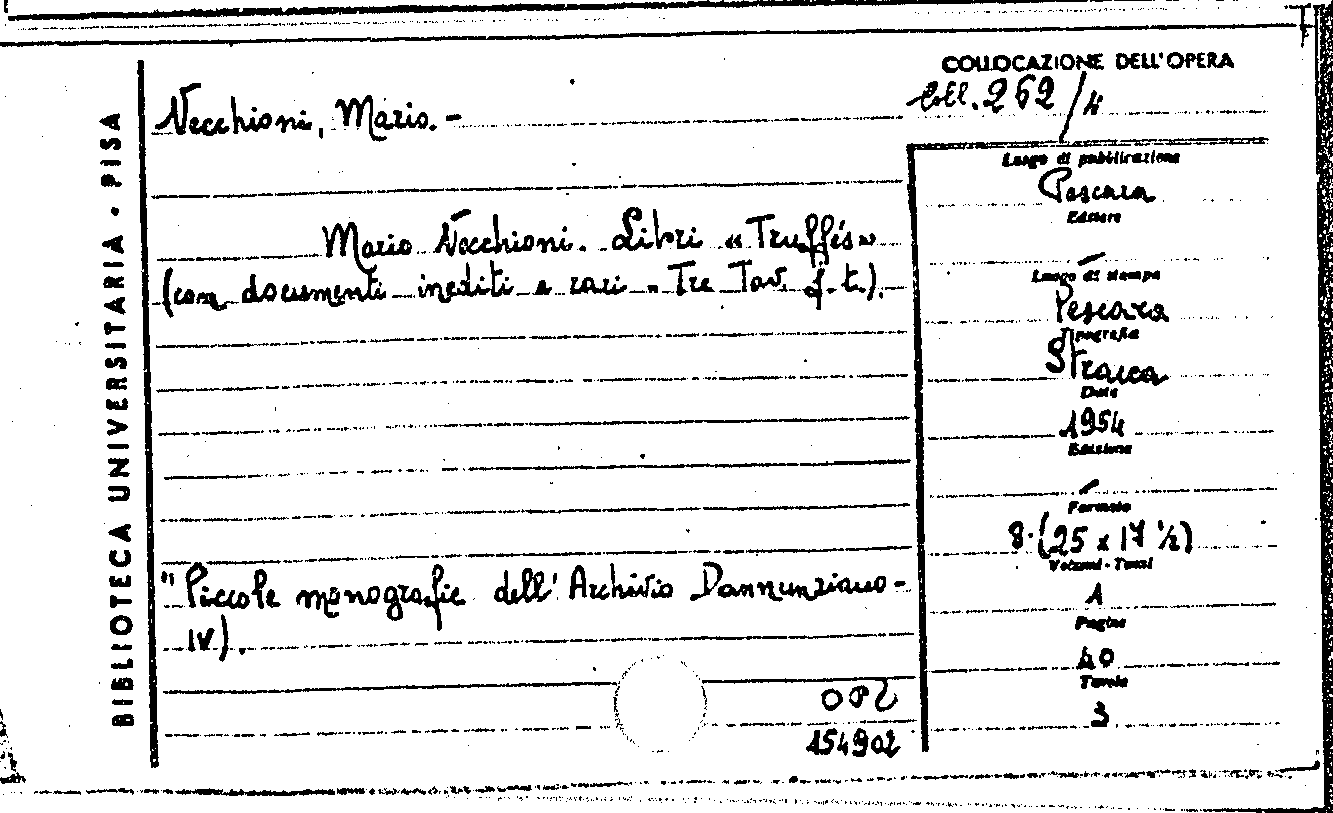 BIBLIOTECA UNIVERSITARIA - PISA
COLLOCAZIONE DELL'OPERA
Coll. 262/4
Vecchioni, Mario. -
Mario Vecchioni. Libri « Truffés »
(con documenti inediti e rari - Tre Tav. f. t.).
"Piccole monografie dell'Archivio Dannunziano -
IV).
OPZ
154902
Luogo di pubblicazione
Pescara
Editore
-
Luogo di stampa
Pescara
Tipografia
Stracca
Data
1954
Edizione
-
Formato
8° (25 x 17 ½)
Volumi - Tomi
1
Pagine
40
Tavole
3